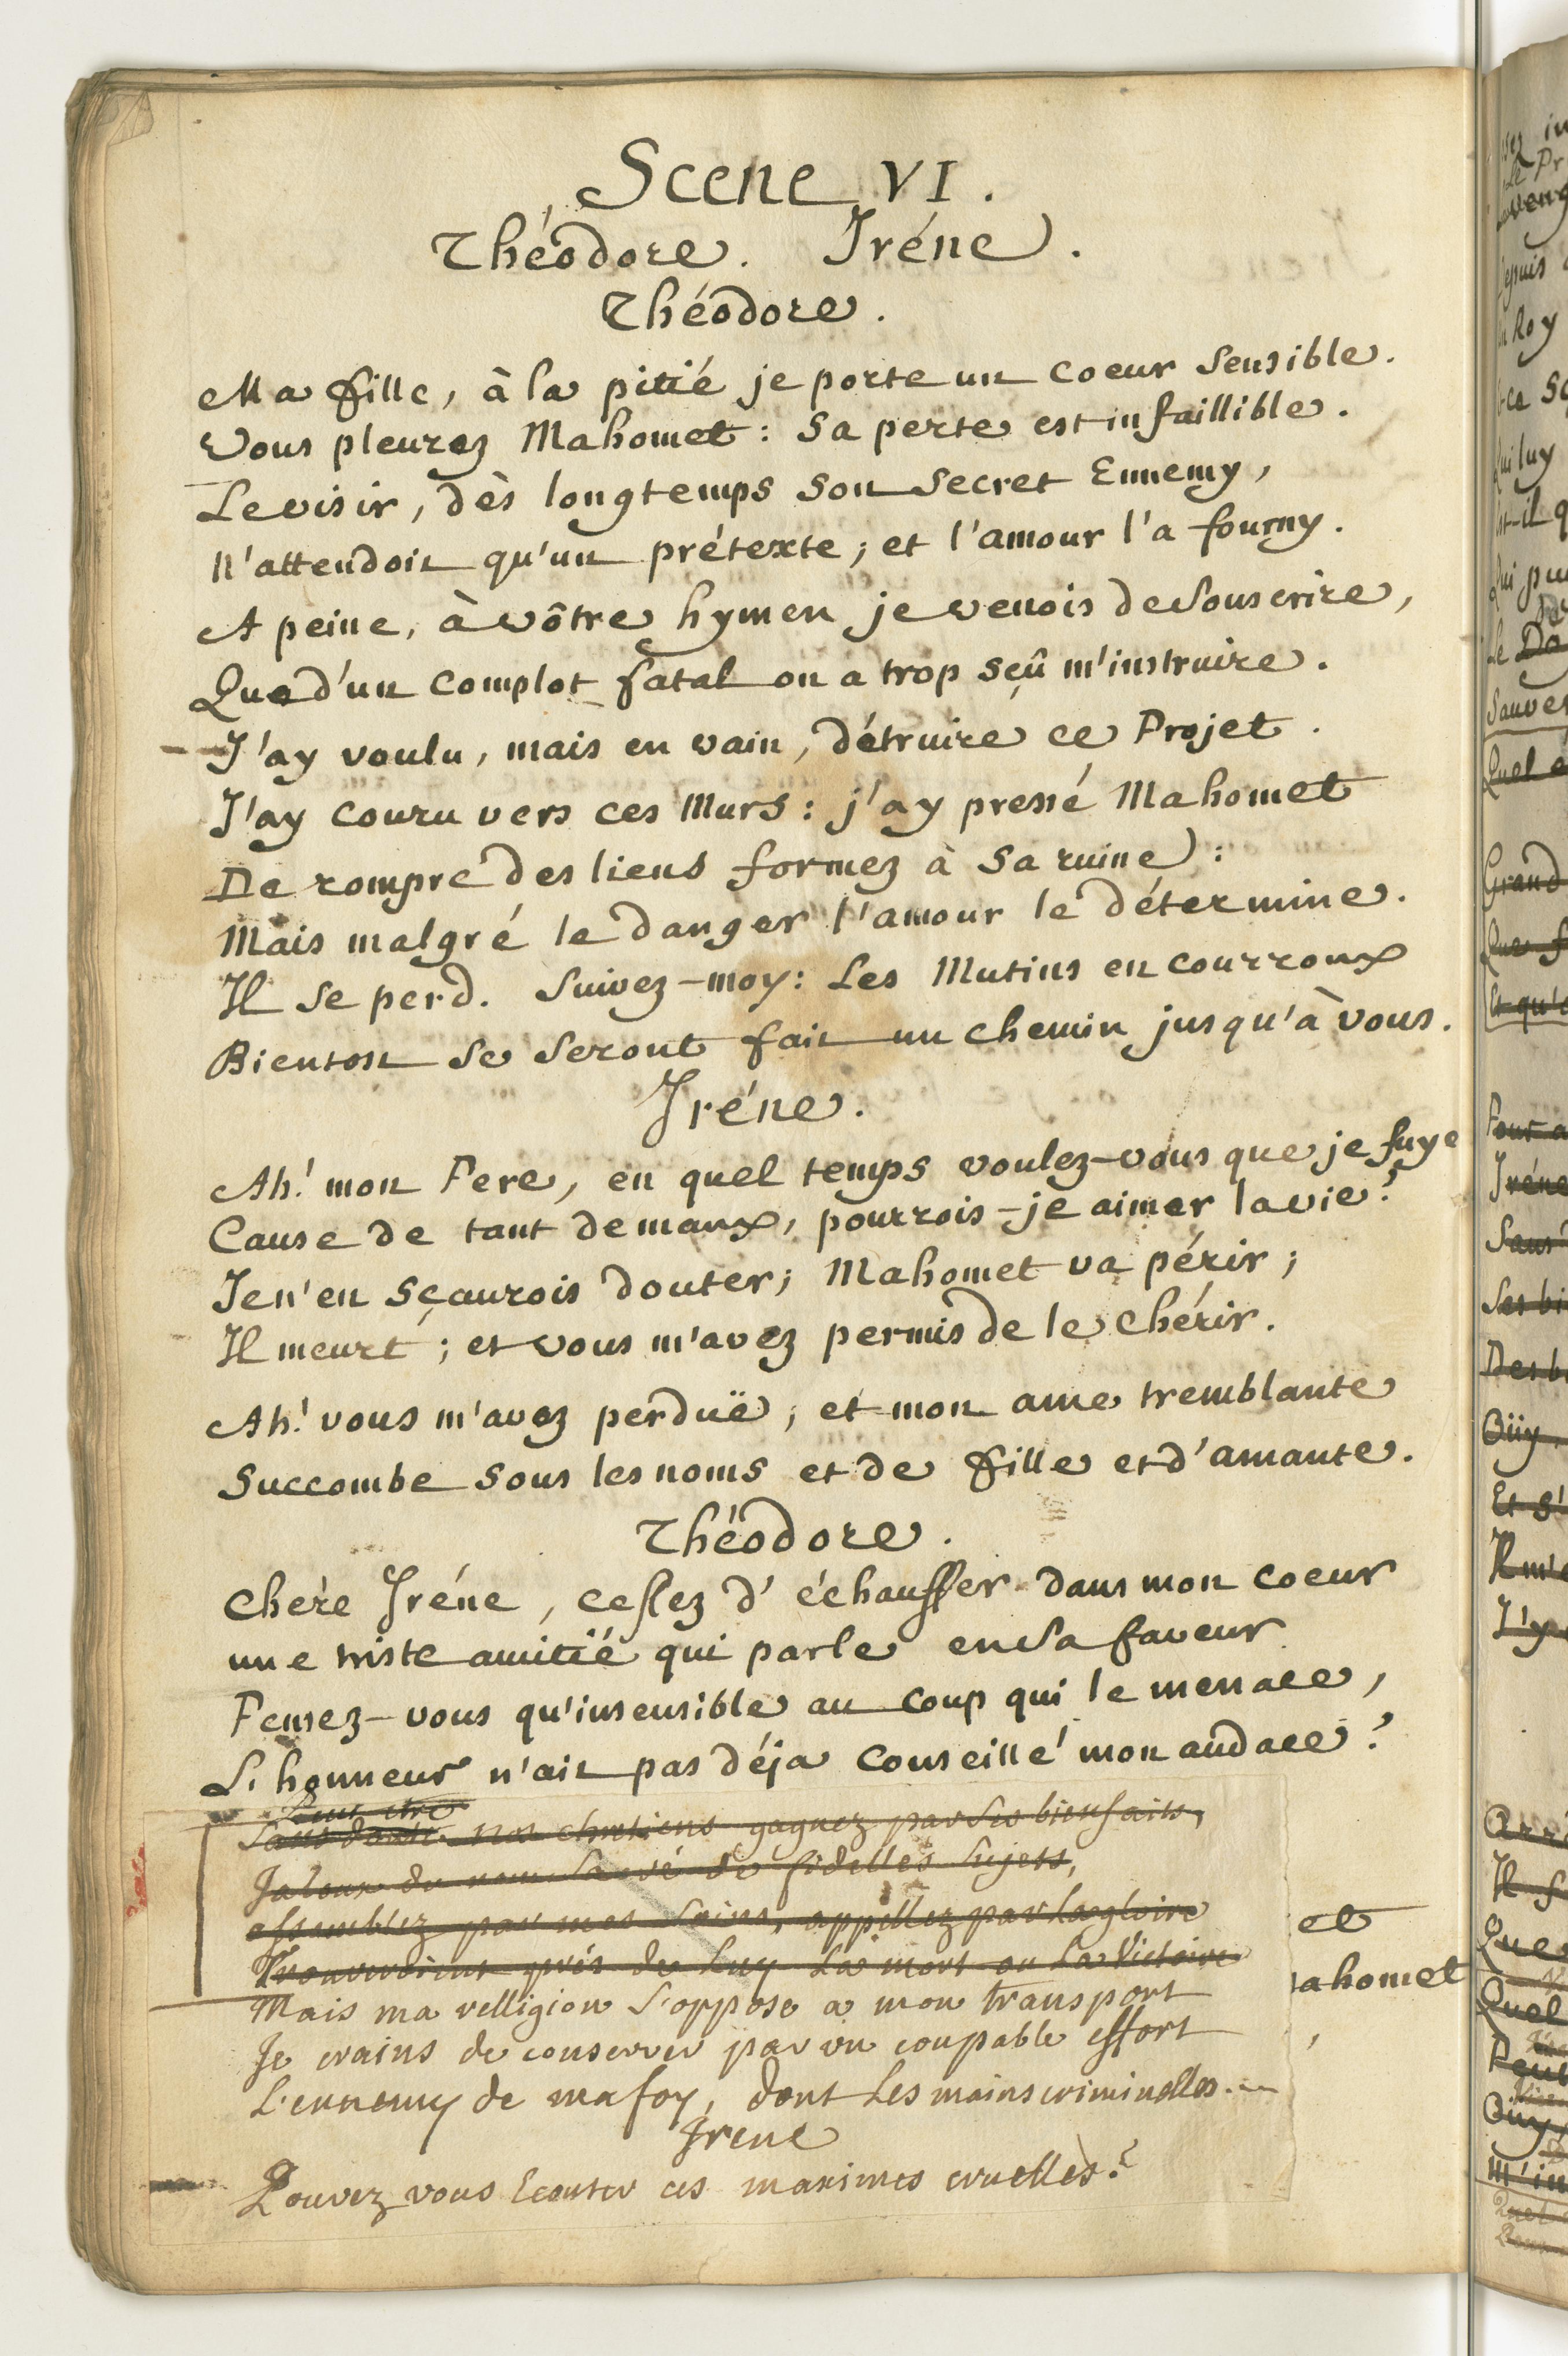 Scene VI.
Théodore. Iréne.
Théodore.
Ma fille, à la pitié je porte un coeur sensible.
Vous pleurez Mahomet: sa perte est infaillible.
Le visir, dès longtemps son secret Ennemy,
N'attendoit qu'un prétexte; et l'amour l'a fourny.
A peine, à vôtre hymen je venois de souscrire,
Que d'un complot fatal on a trop sçû m'instruire.
J'ay voulu, mais en vain, détruire ce Projet.
J'ay couru vers ces Murs: j'ay pressé Mahomet
De rompre des liens formez à sa ruine:
Mais malgré le danger l'amour le détermine.
Il se perd. Suivez-moy: Les Mutins en courroux
Bientost se seront fait un chemin jusqu'à vous.
Iréne.
Ah! mon Pere, en quel temps voulez-vous que je fuye
Cause de tant de maux, pourrois-je aimer la vie?
Je n'en sçaurois douter; Mahomet va périr;
Il meurt; et vous m'avez permis de le chérir.
Ah! vous m'avez perduë; et mon ame tremblante
Succombe sous les noms et de fille et d'amante.
Théodore.
Chére Iréne, cessez d'échauffer dans mon coeur
une triste amitié qui parle en sa faveur
Pensez-vous qu'insensible au coup qui le menace,
L'honneur n'ait pas déja conseillé mon audace?
Peut etre
Sans doute nos chretiens gagnez par ses bienfaits,
Jaloux du nom sacré de fidelles sujets,
assemblez par mes soins, appellez par la gloire
Trouveroient prés de luy la mort ou la Victoire
et
Mais ma relligion s'oppose a mon transport
ahomet
Je crains de conserver par un coupable effort
,
L'ennemy de ma foy, dont les mains criminelles...
Irene
Pouvez vous ecouter ces maximes cruelles?